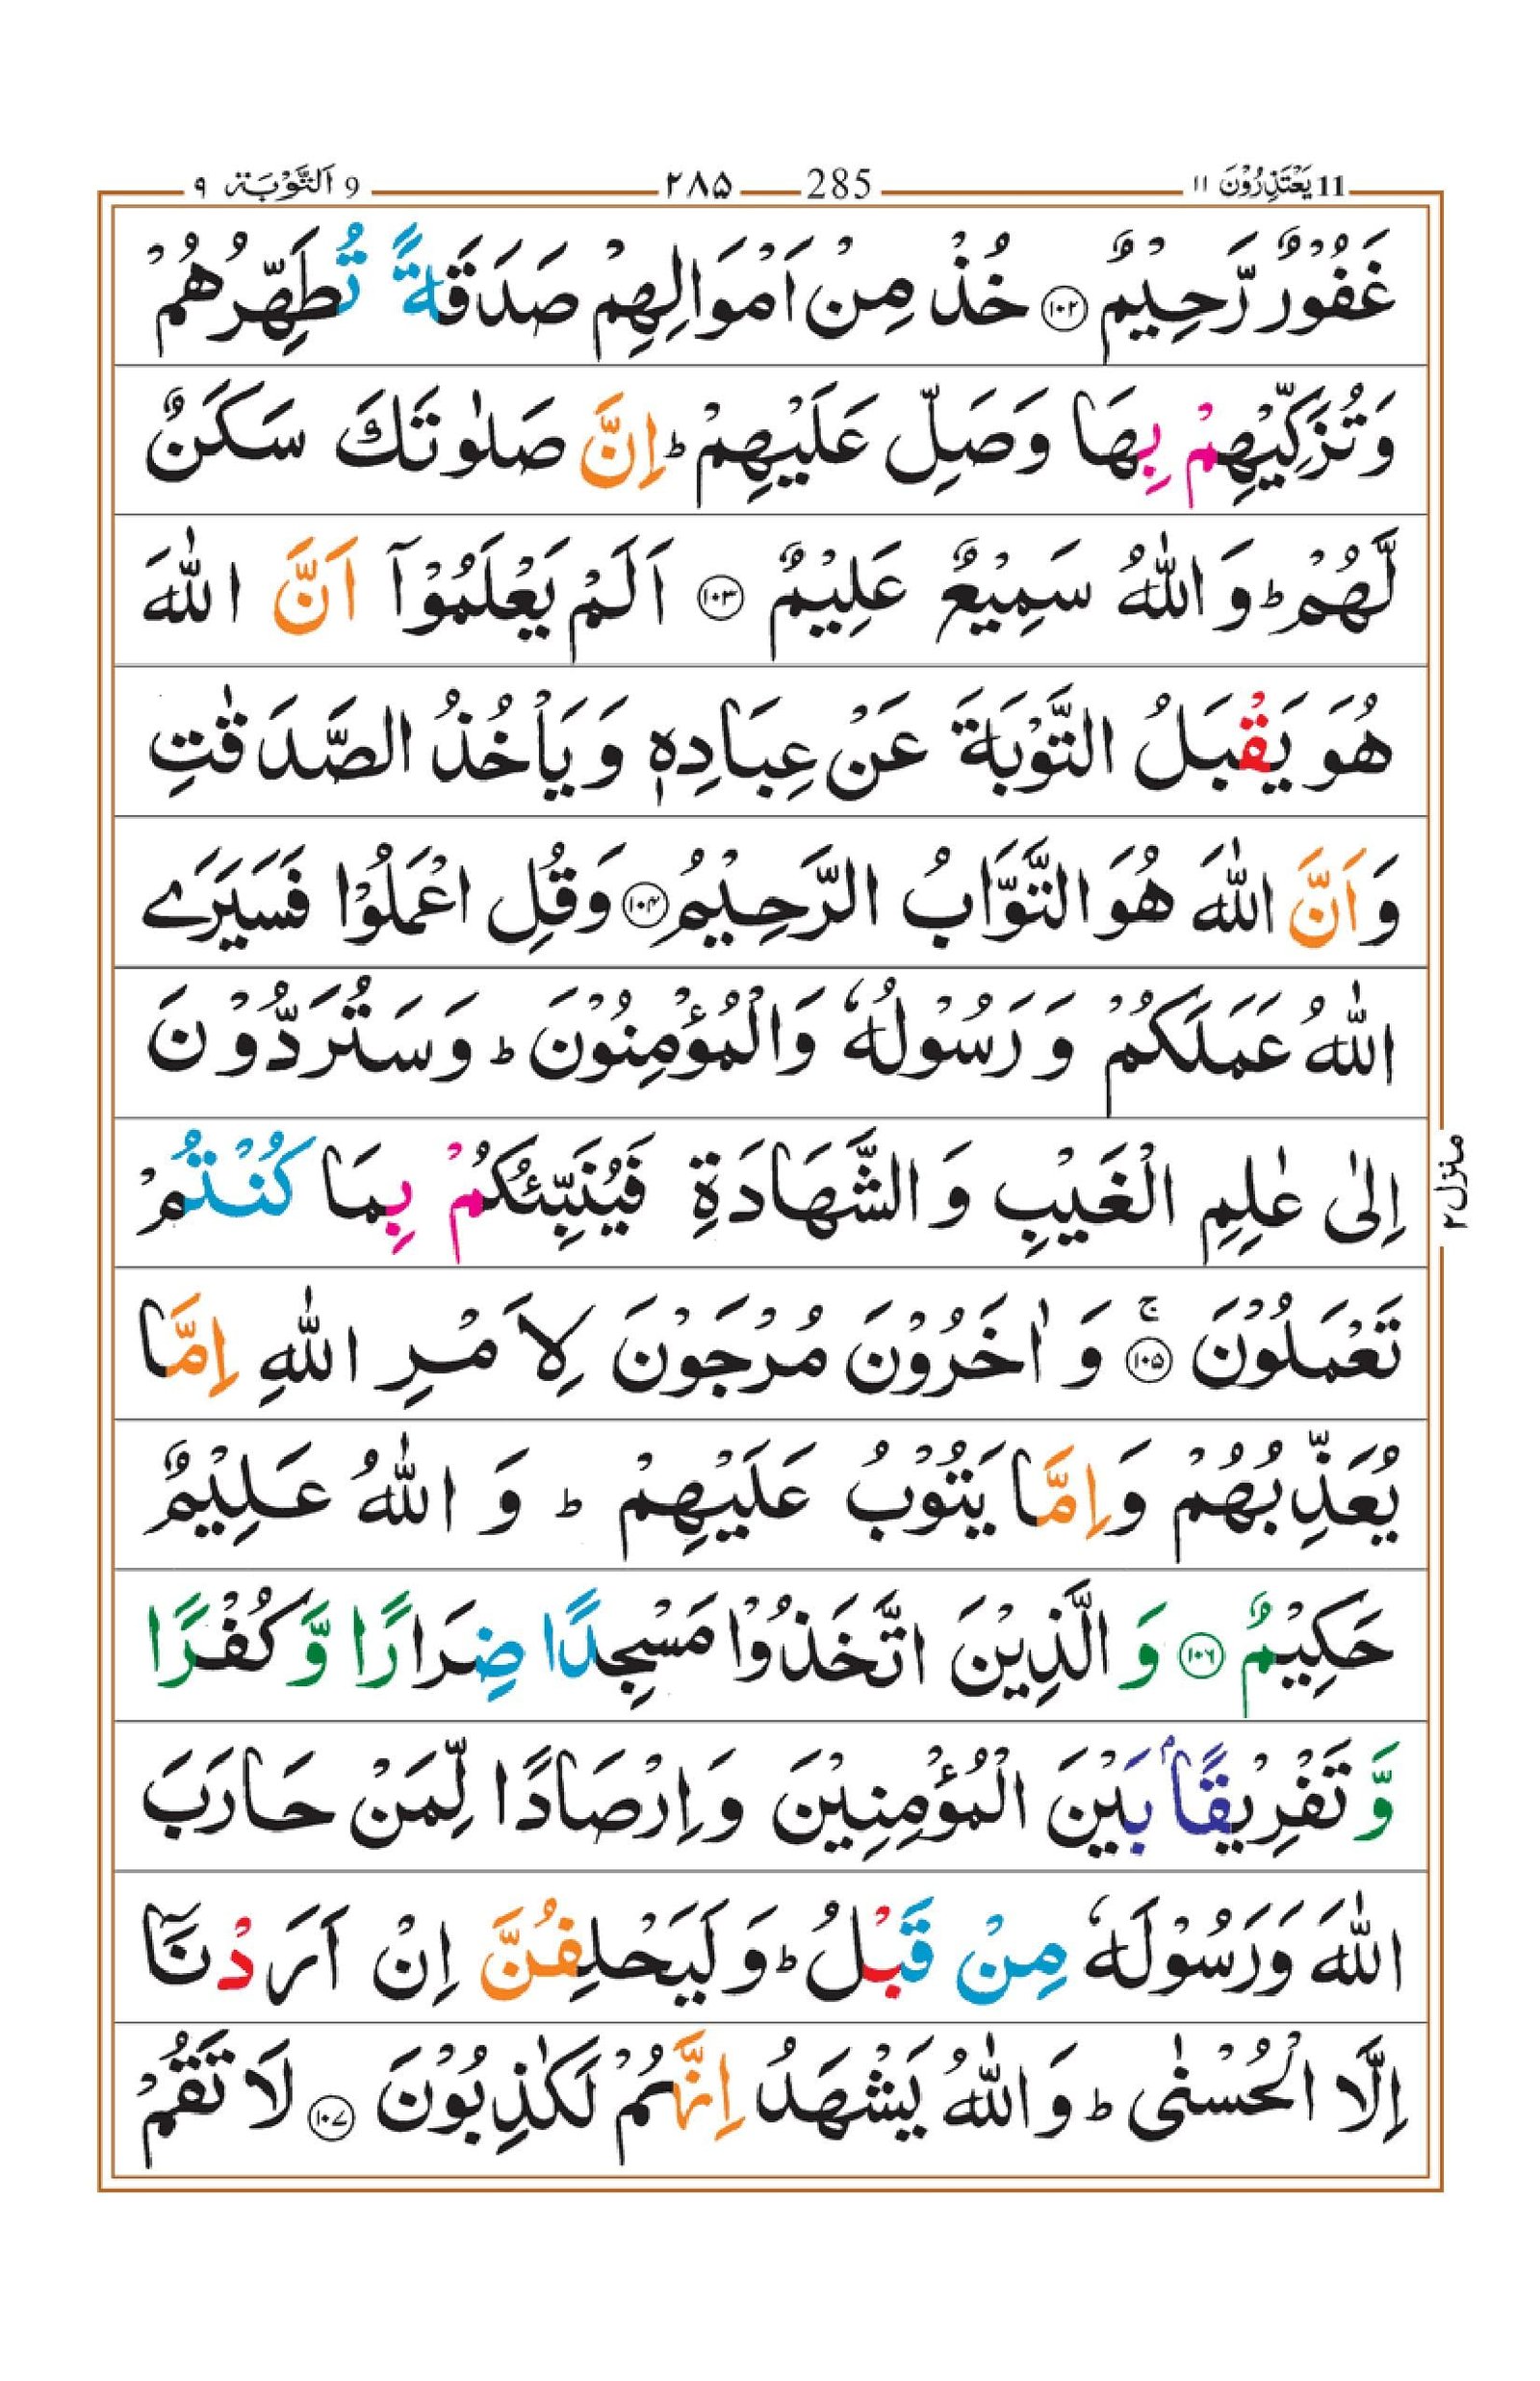 11 يَعْتَذِرُوْنَ ۱۱ 285 ۲۸۵ 9 اَلتَّوْبَة ۹
غَفُوْرٌ رَّحِيْمٌ ﴿۱۰۲﴾ خُذْ مِنْ اَمْوَالِهِمْ صَدَقَةً تُطَهِّرُهُمْ
وَتُزَكِّيْهِمْ بِهَا وَصَلِّ عَلَيْهِمْ ؕ اِنَّ صَلٰوتَكَ سَكَنٌ
لَّهُمْ ؕ وَ اللّٰهُ سَمِيْعٌ عَلِيْمٌ ﴿۱۰۳﴾ اَلَمْ يَعْلَمُوْۤا اَنَّ اللّٰهَ
هُوَ يَقْبَلُ التَّوْبَةَ عَنْ عِبَادِهٖ وَ يَاْخُذُ الصَّدَقٰتِ
وَ اَنَّ اللّٰهَ هُوَ التَّوَّابُ الرَّحِيْمُ ﴿۱۰۴﴾ وَقُلِ اعْمَلُوْا فَسَيَرَى
اللّٰهُ عَمَلَكُمْ وَ رَسُوْلُهٗ وَالْمُؤْمِنُوْنَ ؕ وَ سَتُرَدُّوْنَ
اِلٰى عٰلِمِ الْغَيْبِ وَ الشَّهَادَةِ فَيُنَبِّئُكُمْ بِمَا كُنْتُمْ
تَعْمَلُوْنَ ۚ﴿۱۰۵﴾ وَ اٰخَرُوْنَ مُرْجَوْنَ لِاَمْرِ اللّٰهِ اِمَّا
يُعَذِّبُهُمْ وَ اِمَّا يَتُوْبُ عَلَيْهِمْ ؕ وَ اللّٰهُ عَلِيْمٌ
حَكِيْمٌ ﴿۱۰۶﴾ وَ الَّذِيْنَ اتَّخَذُوْا مَسْجِدًا ضِرَارًا وَّ كُفْرًا
وَّ تَفْرِيْقًاۢ بَيْنَ الْمُؤْمِنِيْنَ وَ اِرْصَادًا لِّمَنْ حَارَبَ
اللّٰهَ وَرَسُوْلَهٗ مِنْ قَبْلُ ؕ وَ لَيَحْلِفُنَّ اِنْ اَرَدْنَاۤ
اِلَّا الْحُسْنٰى ؕ وَ اللّٰهُ يَشْهَدُ اِنَّهُمْ لَكٰذِبُوْنَ ﴿۱۰۷﴾ لَا تَقُمْ
منزل ۲